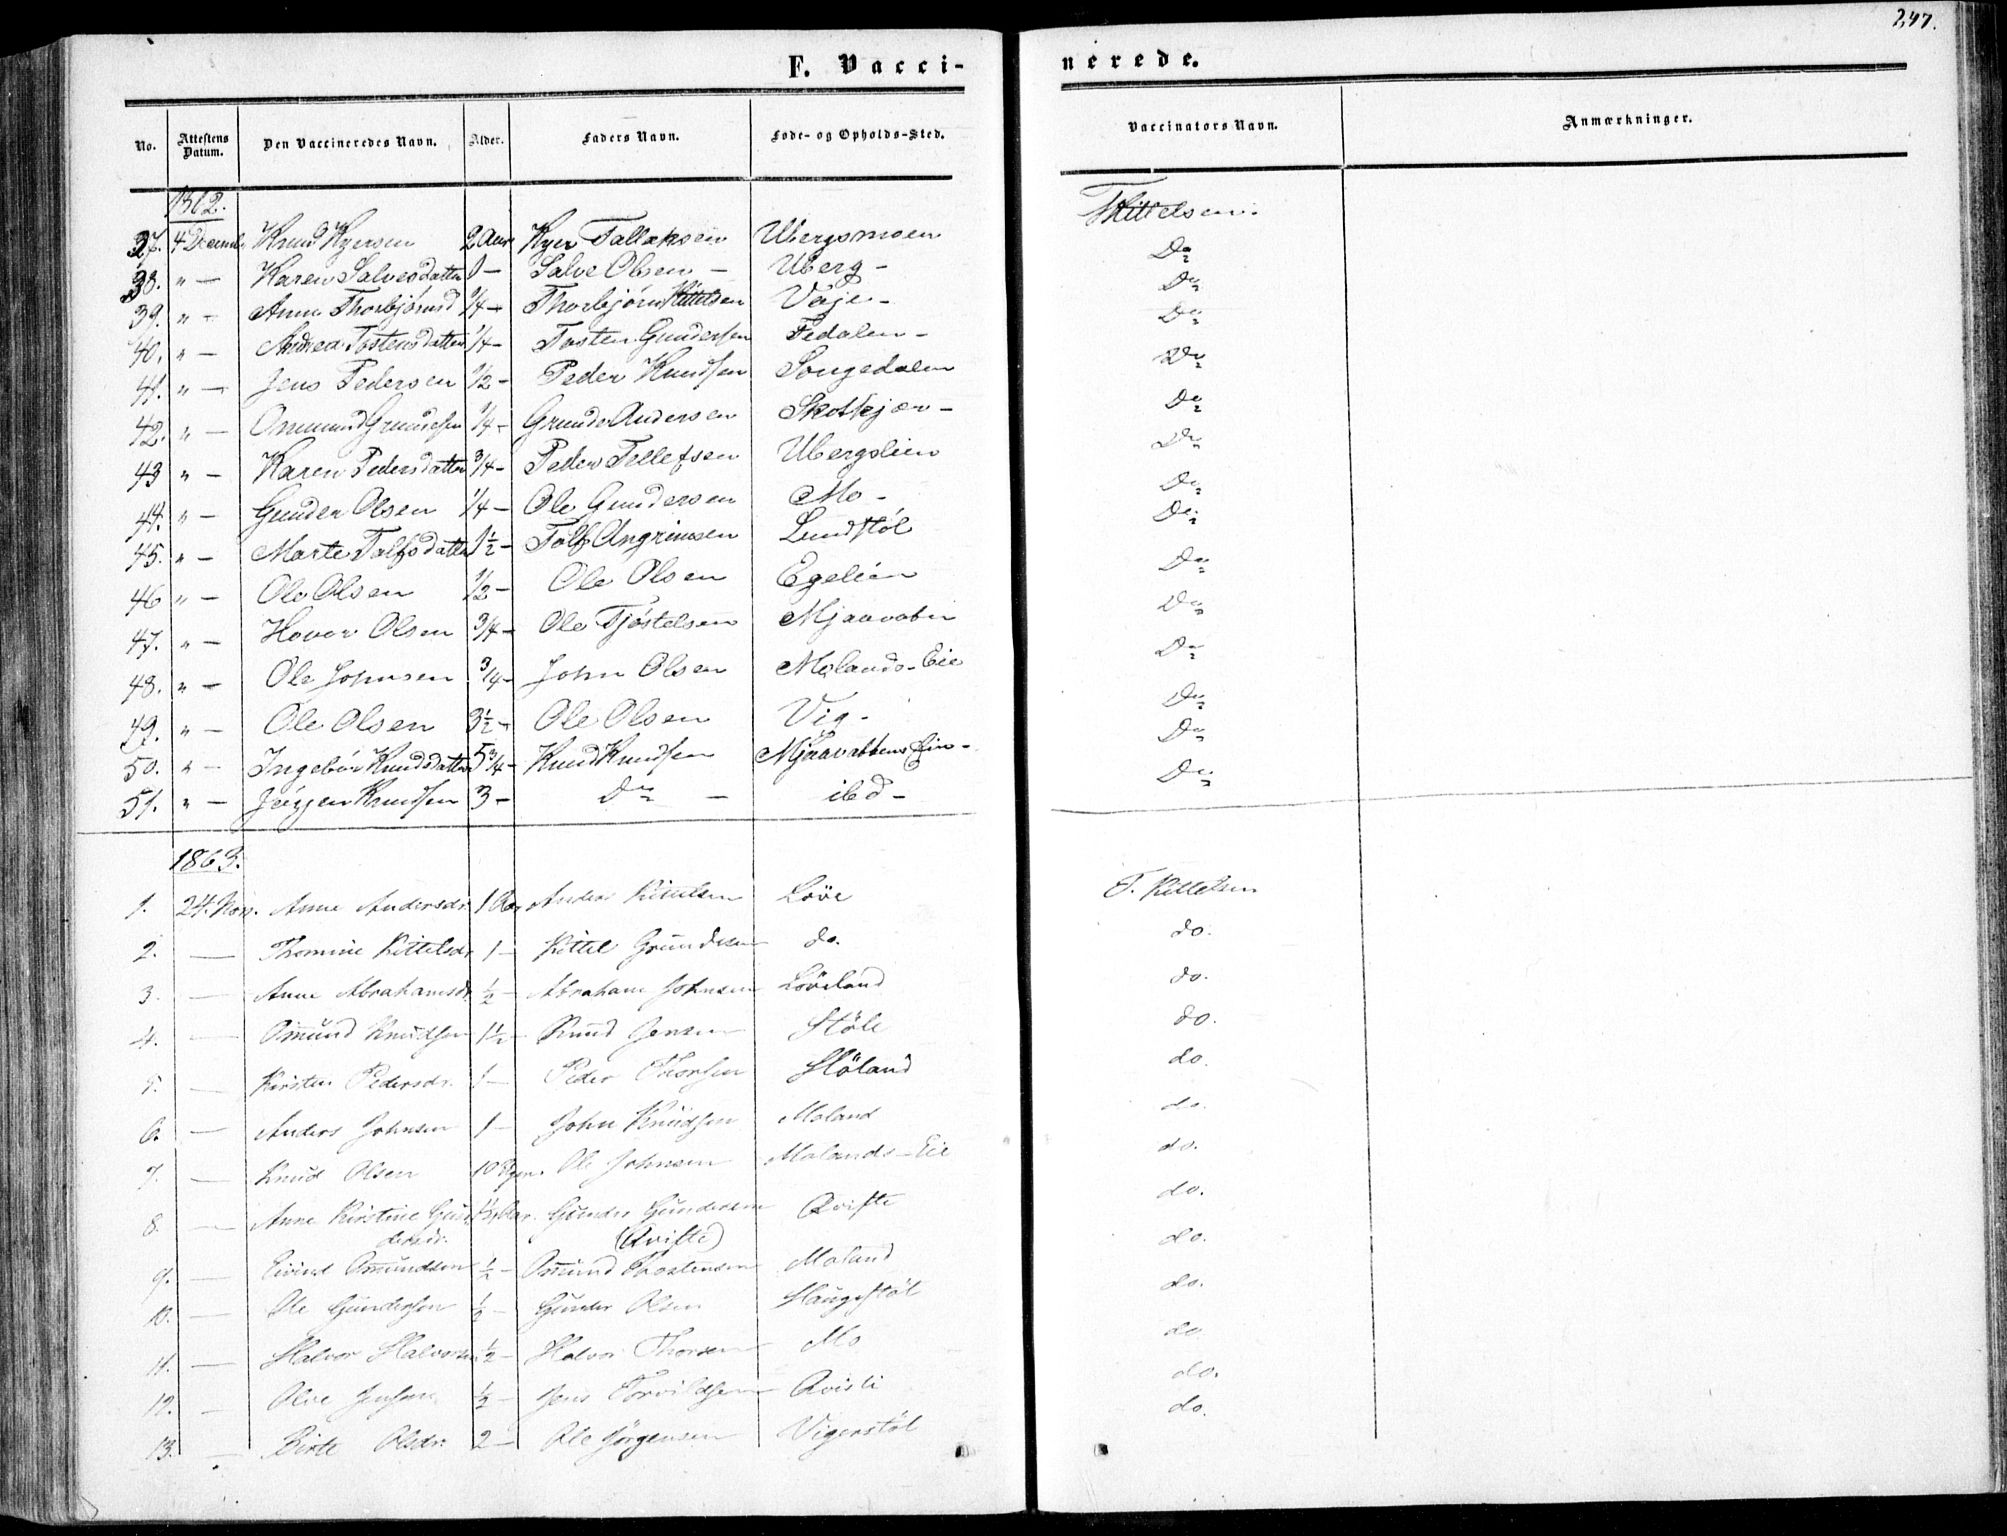 247.
F. Vacci-
nerede.
No. Attestens Datum. Den Vaccineredes Navn. Alder. Faders Navn. Føde- og Opholds-Sted. Vaccinators Navn. Anmærkninger.
1862.
37. 4 Decemb. Knud Kyersen 2 Aar Kyer Tallaksen Ubergsmoen TKittelsen.
38. " — Karen Salvesdatter 1 — Salve Olsen — Uberg — Do
39. " — Anne Thorbjørnsd 1/4 — Thorbjørn Kittelsen Vaje — Do
40. " — Andrea Tostensdatter 1/4 — Tosten Gundersen Fedalen — Do
41. " — Jens Pedersen 1/2 — Peder Knudsen Songedalen Do
42. " — Ommund Grundesen 1/4 — Grunde Andersen Skotkjær — Do
43 " — Karen Pedersdatter 3/4 — Peder Tellefsen Ubergslien Do
44. " — Gunder Olsen 1/4 — Ole Gundersen Mo — Do
45. " — Marte Talfsdatter 1 1/2 — Talf Angrimsen Lundstøl Do
46 " — Ole Olsen 1/2 — Ole Olsen Egelien Do
47. " — Hovor Olsen 3/4 — Ole Tjøstelsen Mjaavatn Do
48. " — Ole Johnsen 3/4 — John Olsen Molands-Eie Do
49. " — Ole Olsen 3 1/2 — Ole Olsen Vig — Do
50. " — Ingebør Knudsdatter 5 3/4 — Knud Knudsen Mjaavatten Eie — Do
51. " — Jørgen Knudsen 3 — Do — ibd — Do
1863.
1. 24. Nov. Anne Andersdr. 1 Aar Anders Kittelsen Løve T. Kittelsen
2. — Thomine Kittelsdr. 1 — Kittel Grundesen do. do.
3. — Anne Abrahamsdr. 1/2 — Abraham Johnsen Løveland do.
4. — Omund Knudsen 1 1/2 — Knud Jensen Støle do.
5. — Kirsten Pedersdr. 1 — Peder Thorsen Høland do.
6. — Anders Johnsen 1 — John Knudsen Moland do.
7. — Knud Olsen 10 Ole Johnsen Molands-Eie do.
8. — Anne Kirstine Gun-
dersdr. 1/2 Aar. Gunder Gundersen
(Qviste) Qviste do.
9. — Eivind Omundsen 1/2 — Omund Thostensen Moland do.
10. — Ole Gundersen 1/2 — Gunder Olsen Haugestøl do.
11. — Halvor Halvorsen 1/2 — Halvor Thorsen Mo do
12. — Olve Jensen 1/2 — Jens Torvildsen Qvisti do.
13. — Birte Olsdr. 2 — Ole Jørgensen Vigerstøl do.